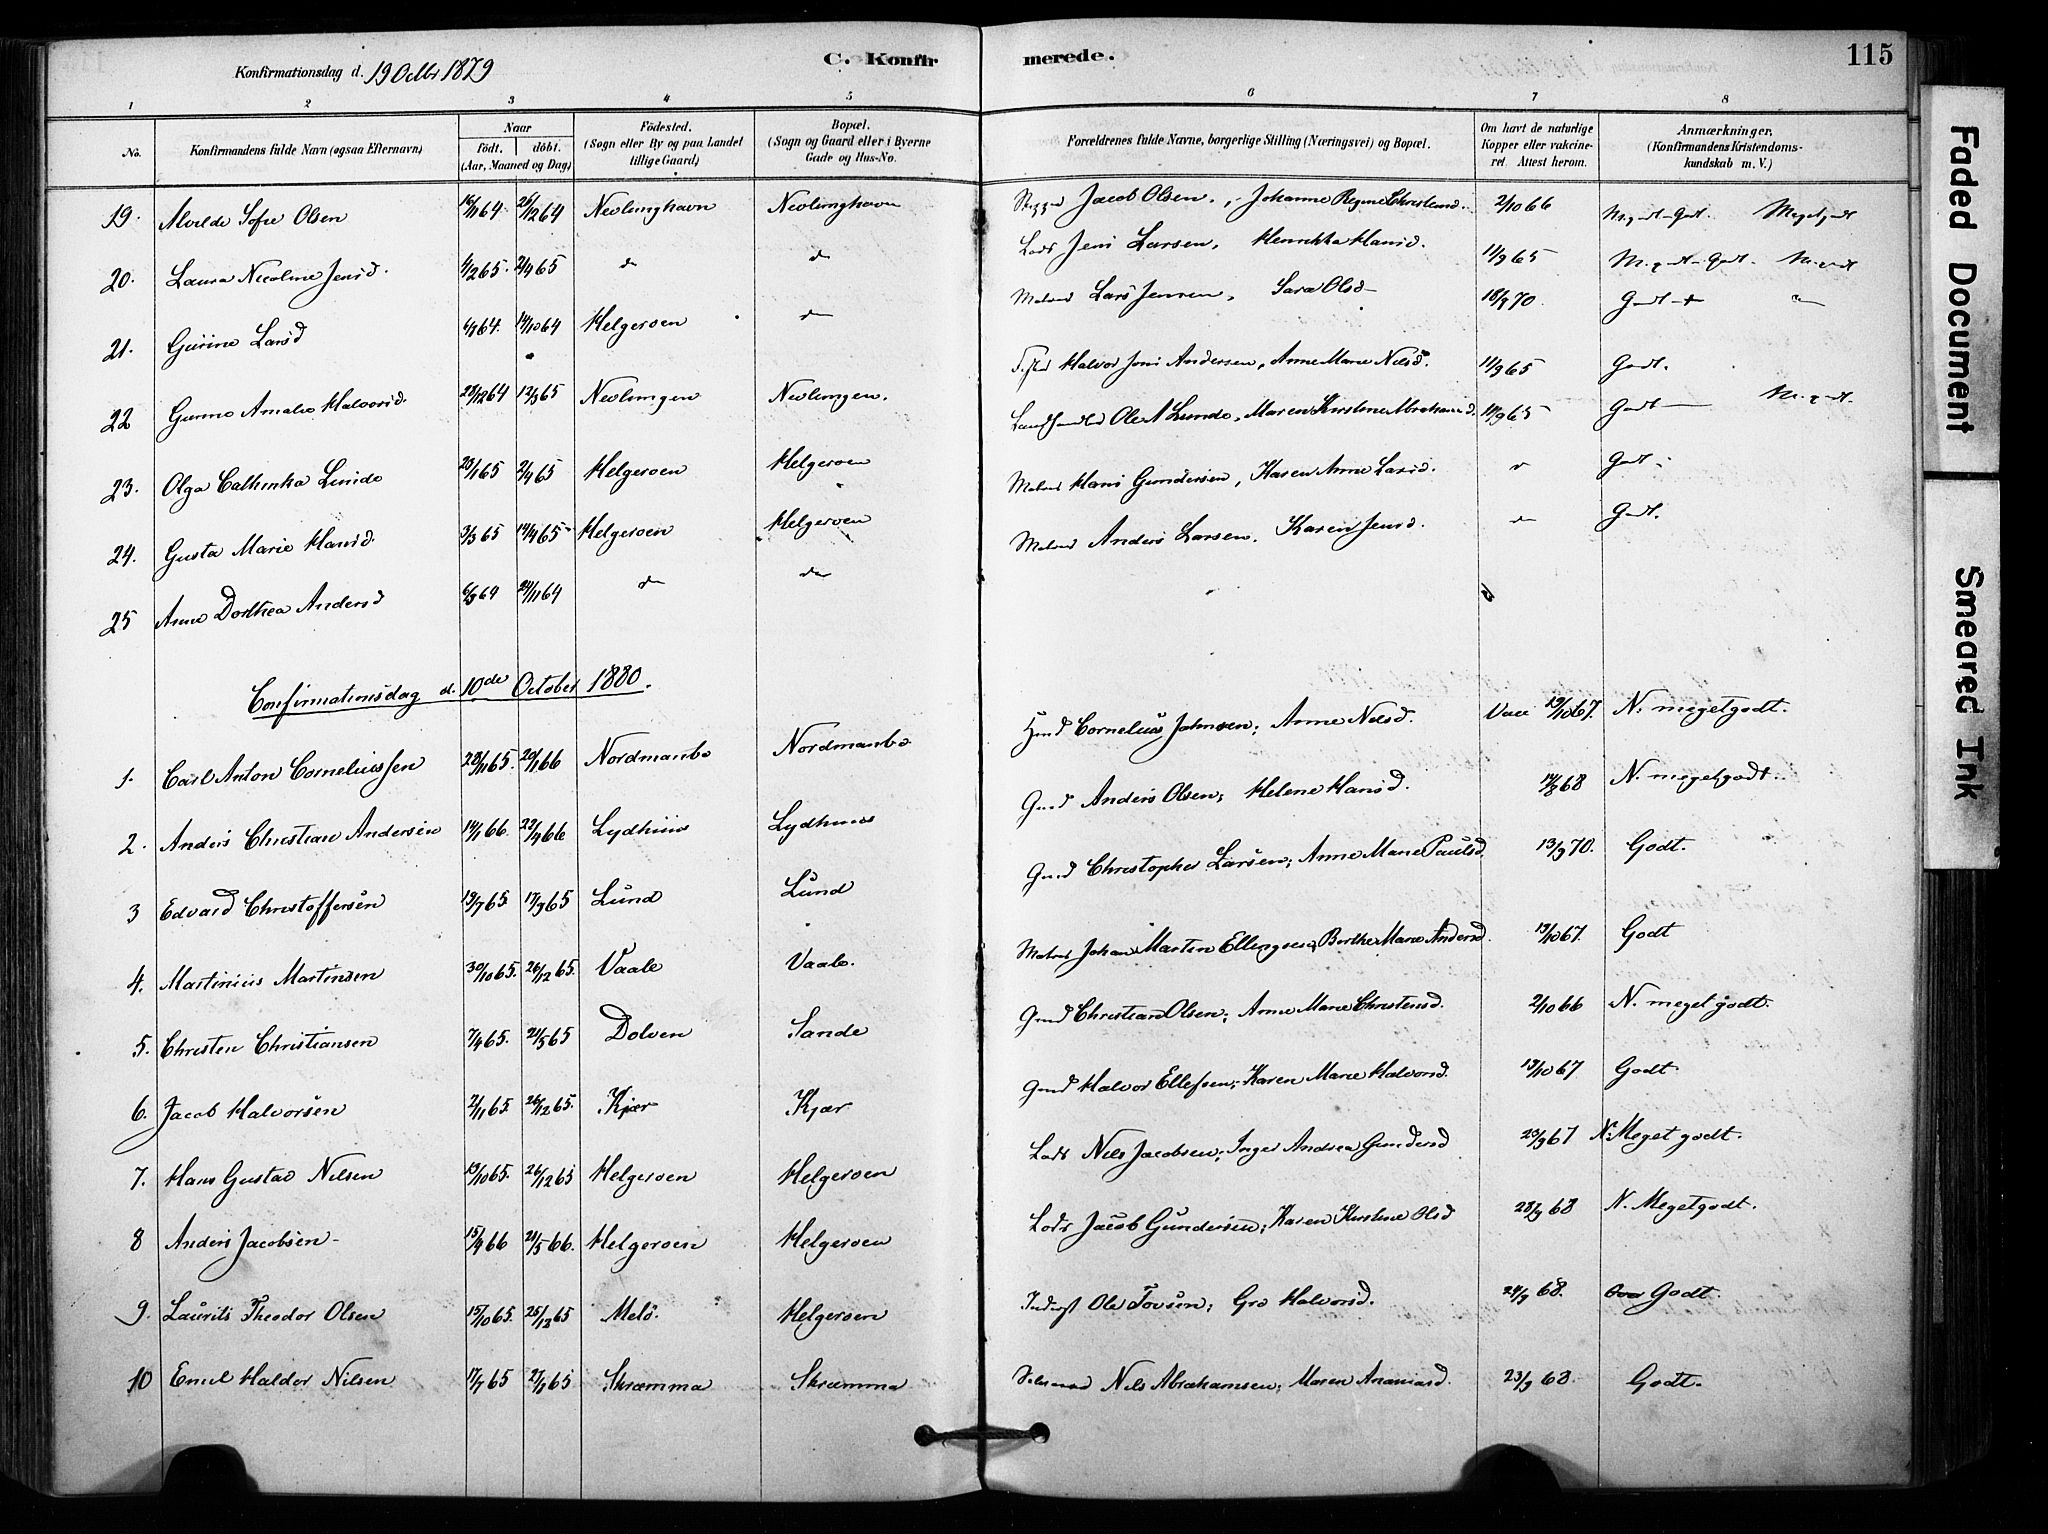 Konfirmationsdag d. 19 Octbr 1879
C. Konfirmerede.
115
1 2 3 4 5 6 7 8
No. Konfirmandens fulde Navn (ogsaa Efternavn) Naar Födt. döbt. (Aar, Maaned og Dag) Födested. (Sogn eller By og paa Landet tillige Gaard) Bopæl. (Sogn og Gaard eller i Byerne Gade og Hus-No. Forældrenes fulde Navne, borgerlige Stilling (Næringsvei) og Bopæl. Om havt de naturlige Kopper eller vakcineret. Attest herom. Anmærkninger. (Konfirmandens Kristendomskundskab m. V.)
19. Sofie Olsen 26/12 64 Nevlinghavn Nevlinghavn Jacob Olsen, Johanne Regine 2/10 66 M. godt-Godt. Megetgodt
20. Laura Nicoline Jensd. 4/2 65. 2/4 65 do do Lods Jens Larsen, Hansd. 11/9 65 M. godt-Godt. M. godt
21. Gurine Larsd 64. 14/10 64 Helgeroen do Matros Lars Jensen, Sara Olsd 70. Godt +
22 Amalie Halvorsd. 28/12 64 12/3 65 Nevlingen Nevlingen. Halvor Andersen, Anne Marie Nilsd. 11/9 65 Godt.
23. Olga Cathinka Lunde 23/1 65 2/4 65 Helgeroen Helgeroen Landhandler Ole A Lunde, Maren Kirstine Abrahamsd. 11/9 65 Godt M. godt.
24. Gusta Marie Hansd. 3/3 65 14/4 65 Helgeroen Helgeroen Matros Hans Gundersen, Karen Anne Larsd. do Godt.
25 Anne Dorthea Andersd 6/9 64 24/11 64 do do Matros Anders Larsen. Karen Jensd. do Godt.
Confirmationsdag d. 10de October 1880.
1. Carl Anton Corneliussen 28/11 65. 20/1 66 Nordmanbo Nordmanbo Cornelius Johnsen; Anne Nilsd. Vacc 19/10 67. N. megetgodt.
2. Anders Christian Andersen 14/1 66. 22/4 66 Lydhuus Lydhuus Gmd Anders Olsen; Helene Hansd. 68 N. megetgodt.
3 Edvard Christoffersen 19/7 65. 17/9 65 Lund Lund Gmd Christopher Larsen; Anne Marie Paulsd. 13/9 70. Godt.
4. Martinius Martinsen 30/10 65. 26/12 65. Vaale Vaale. Matros Johan Martin Ellingsen; Berthe Marie Andersd. 19/10 67. Godt
5. Christen Christiansen 7/4 65. 21/5 65 Dolven Sande Gmd Christian Olsen; Anne Marie Christensd. 2/10 66 N. meget godt.
6. Jacob Halvorsen 2/11 65. 26/12 65. Kjær Kjær Gmd Halvor Ellefsen; Karen Marie Halvorsd. 19/10 67 Godt
7. Hans Gustav Nilsen 19/10 65. 26/12 65 Helgeroen Helgeroen Lods Nils Jacobsen; Inger Andrea Gundersd 23/9 67 N. Meget godt.
8 Anders Jacobsen 15/4 66 21/5 66. Helgeroen Helgeroen Lods Jacob Gundersen; Karen Kirstine Olsd 28/9 68 N. Megetgodt.
9. Laurits Theodor Olsen 15/10 65. 25/12 65 Melö. Helgeroen Inderst Ole Tovsen; Gro Halvorsd. 24/9 68. Godt.
10 Emil Haldor Nilsen 17/7 65 65 Skræmma Skræmma Nils Abrahamsen; Maren Ananiasd. 23/9 68. Godt.
Faded Document
Smeared Ink